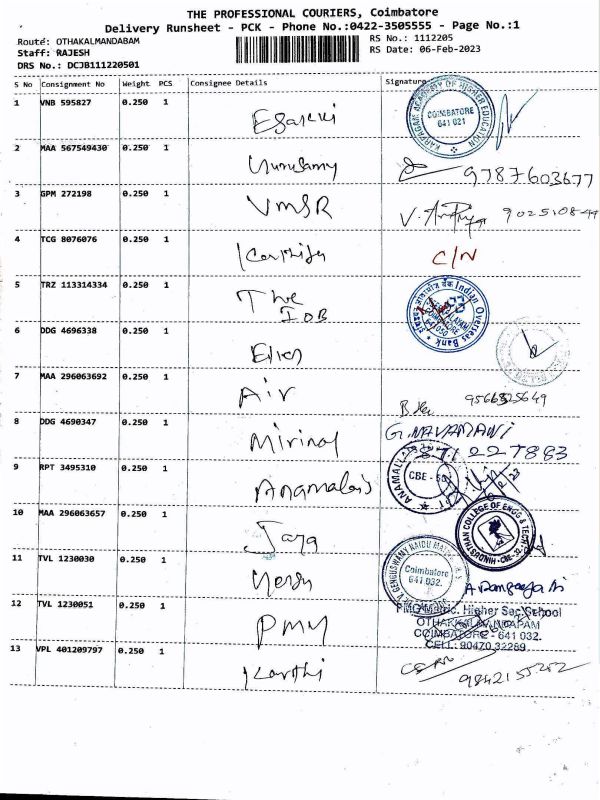 THE PROFESSIONAL COURIERS, Coimbatore
Delivery Runsheet - PCK - Phone No.:0422-3505555 - Page No.:1
Route: OTHAKALMANDABAM
RS No.: 1112205
Staff: RAJESH
RS Date: 06-Feb-2023
DRS No.: DCJB111220501
S No Consignment No Weight PCS Consignee Details Signature
1 VNB 595827 0.250 1
KARPAGAM ACADEMY OF HIGHER EDUCATION
COIMBATORE
641 021
2 MAA 567549430 0.250 1 Gurusamy
9787603677
3 GPM 272198 0.250 1 VMSR
4 TCG 8076076 0.250 1 C/N
5 TRZ 113314334 0.250 1 The
IOB
Indian Overseas Bank
641050
6 DDG 4696338 0.250 1
7 MAA 296063692 0.250 1 Air
8 DDG 4690347 0.250 1
G. NAVAMANI
9 RPT 3495310 0.250 1
CBE - 50
10 MAA 296063657 0.250 1
HINDUSTHAN COLLEGE OF ENGG & TECH
11 TVL 1230030 0.250 1
Coimbatore
641 032.
12 TVL 1230051 0.250 1 PMY
PMG Matric. Higher Sec. School
OTHAKKALMANDAPAM
COIMBATORE - 641 032.
CELL: 90470 32289
13 VPL 401209797 0.250 1 Karthi
9842155252